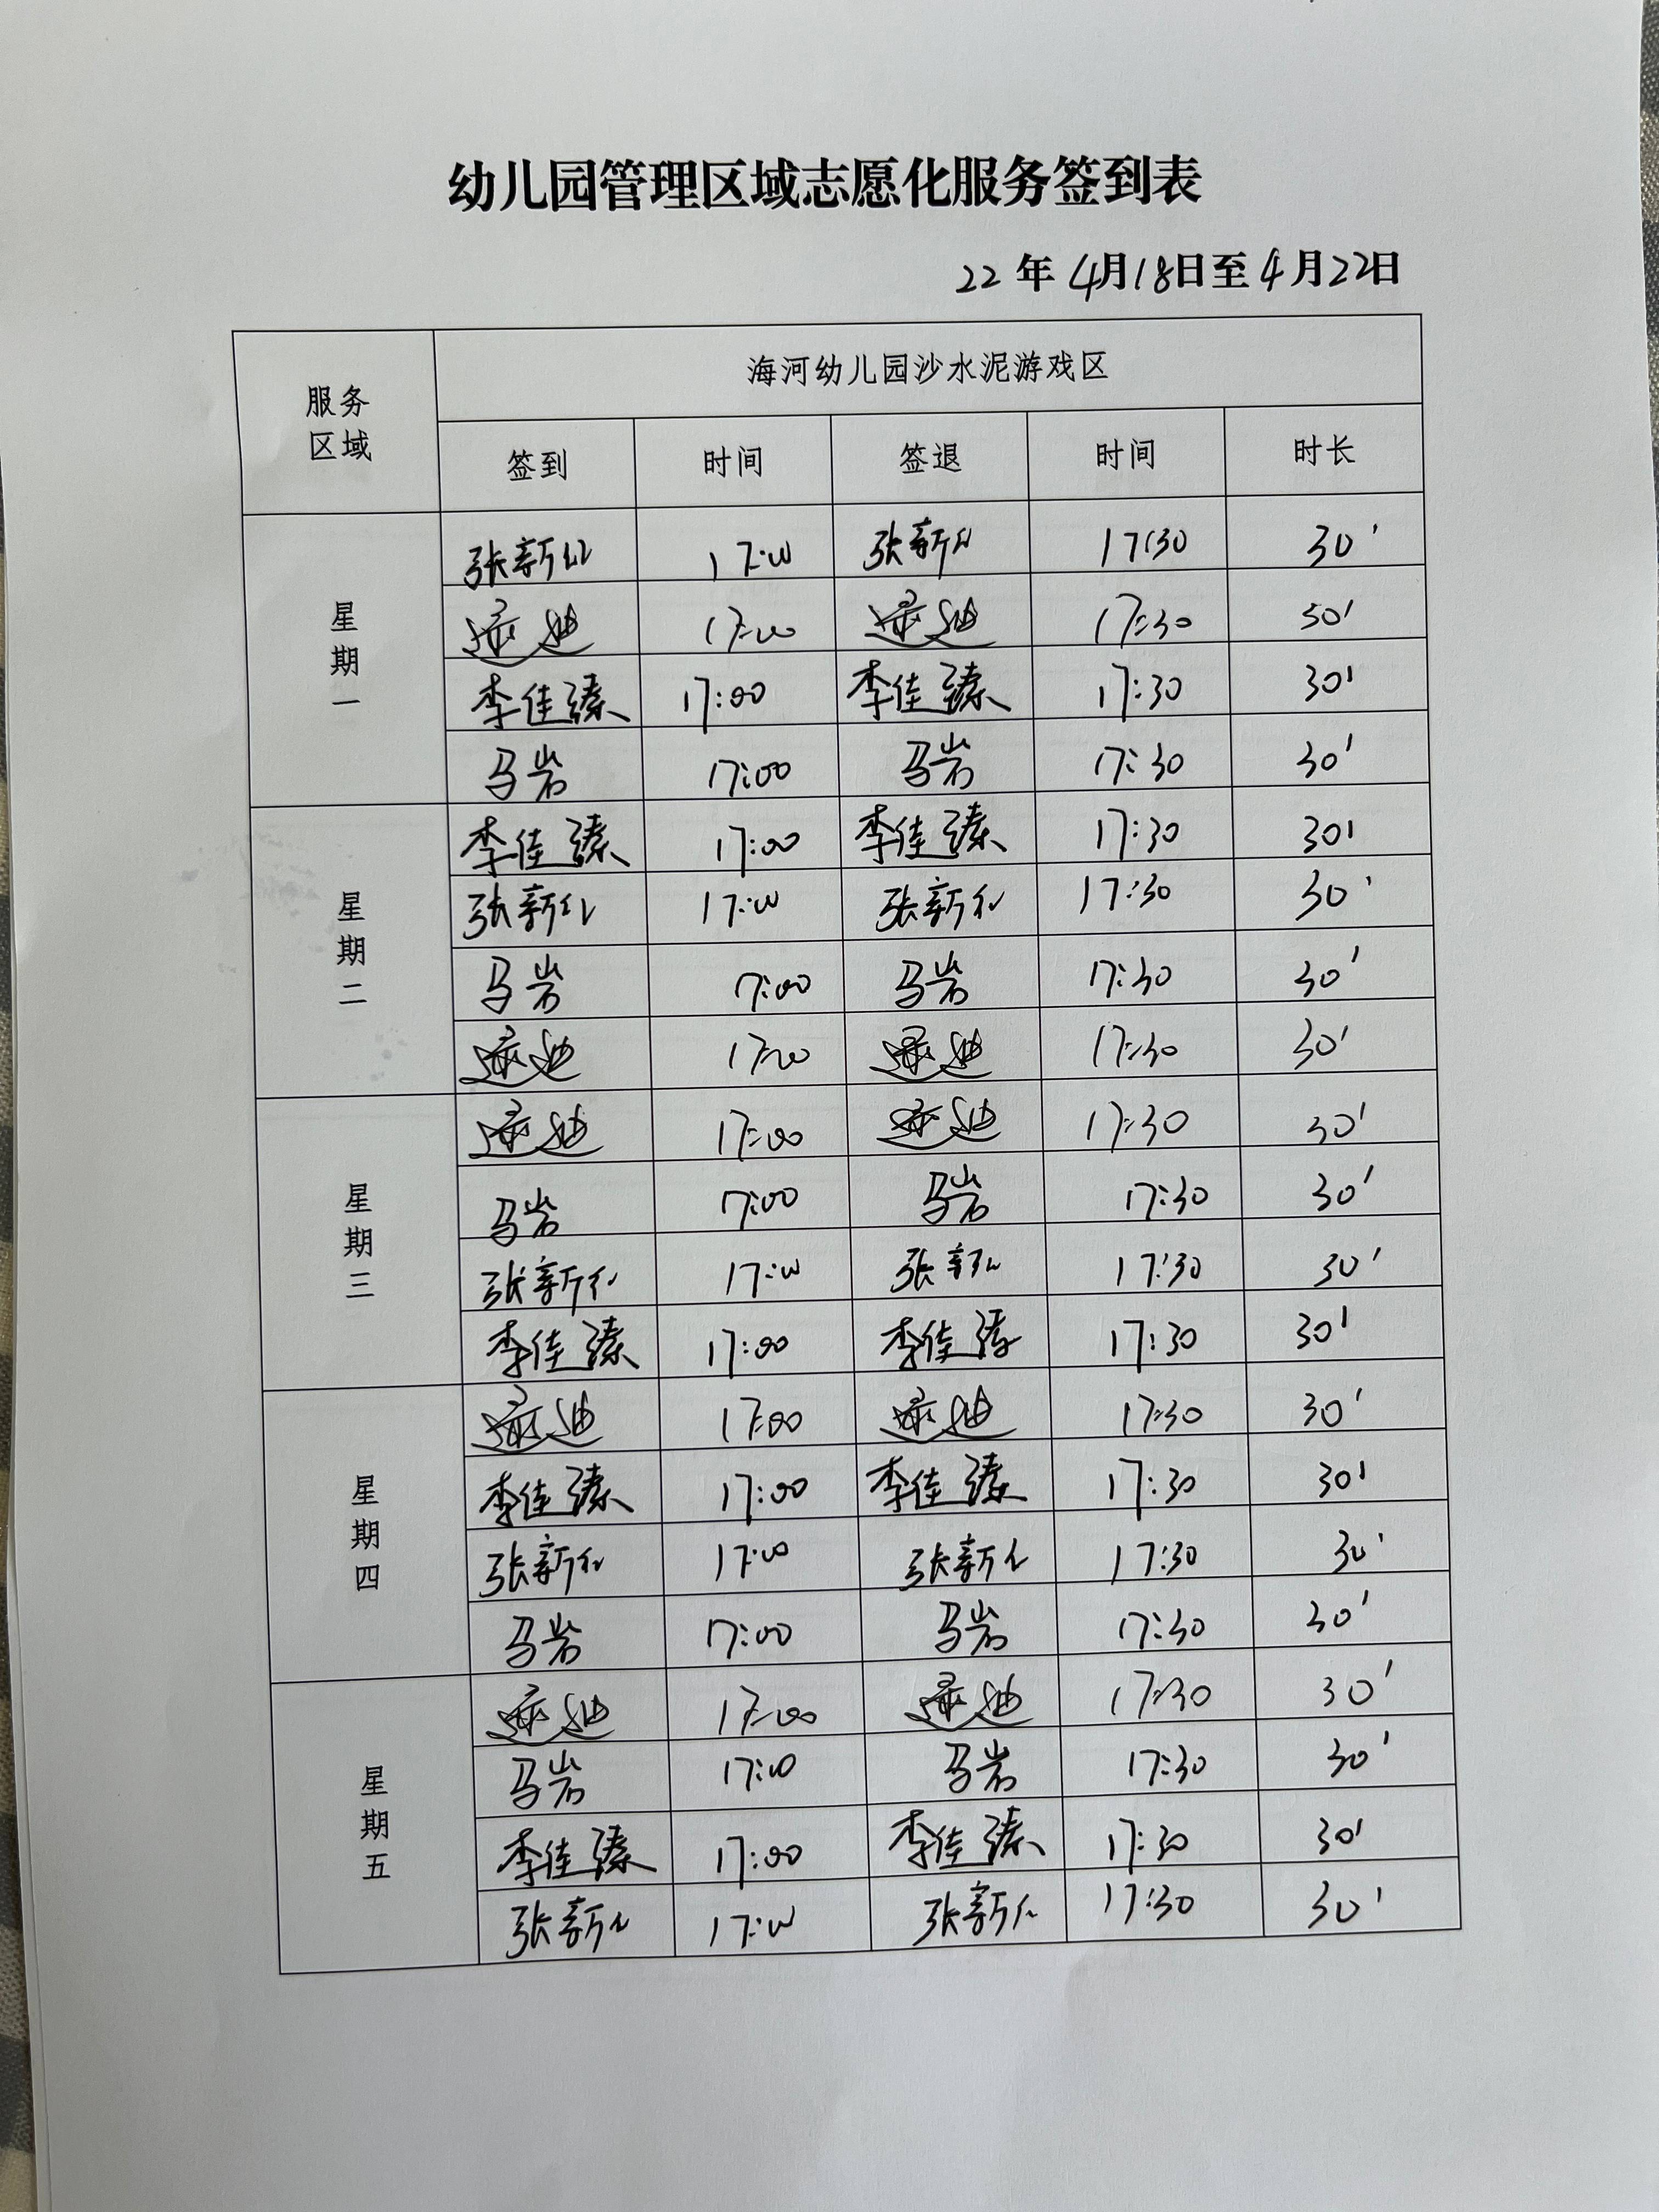 幼儿园管理区域志愿化服务签到表
22年4月18日至4月22日
服务区域 海河幼儿园沙水泥游戏区
签到 时间 签退 时间 时长
星期一
张新 17:00 张新 17:30 30'
迪 17:00 迪 17:30 30'
李佳臻 17:00 李佳臻 17:30 30'
马岩 17:00 马岩 17:30 30'
星期二
李佳臻 17:00 李佳臻 17:30 30'
张新 17:00 张新 17:30 30'
马岩 17:00 马岩 17:30 30'
迪 17:00 迪 17:30 30'
星期三
迪 17:00 迪 17:30 30'
马岩 17:00 马岩 17:30 30'
张新 17:00 张新 17:30 30'
李佳臻 17:00 李佳臻 17:30 30'
星期四
迪 17:00 迪 17:30 30'
李佳臻 17:00 李佳臻 17:30 30'
张新 17:00 张新 17:30 30'
马岩 17:00 马岩 17:30 30'
星期五
迪 17:00 迪 17:30 30'
马岩 17:00 马岩 17:30 30'
李佳臻 17:00 李佳臻 17:30 30'
张新 17:00 张新 17:30 30'